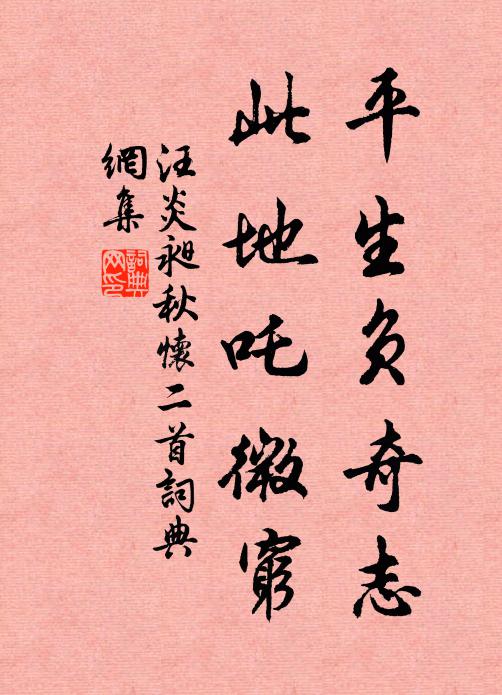 平生负奇志
此地吒微窮
汪炎昶秋懷二首詞典
網集
詞典
网印